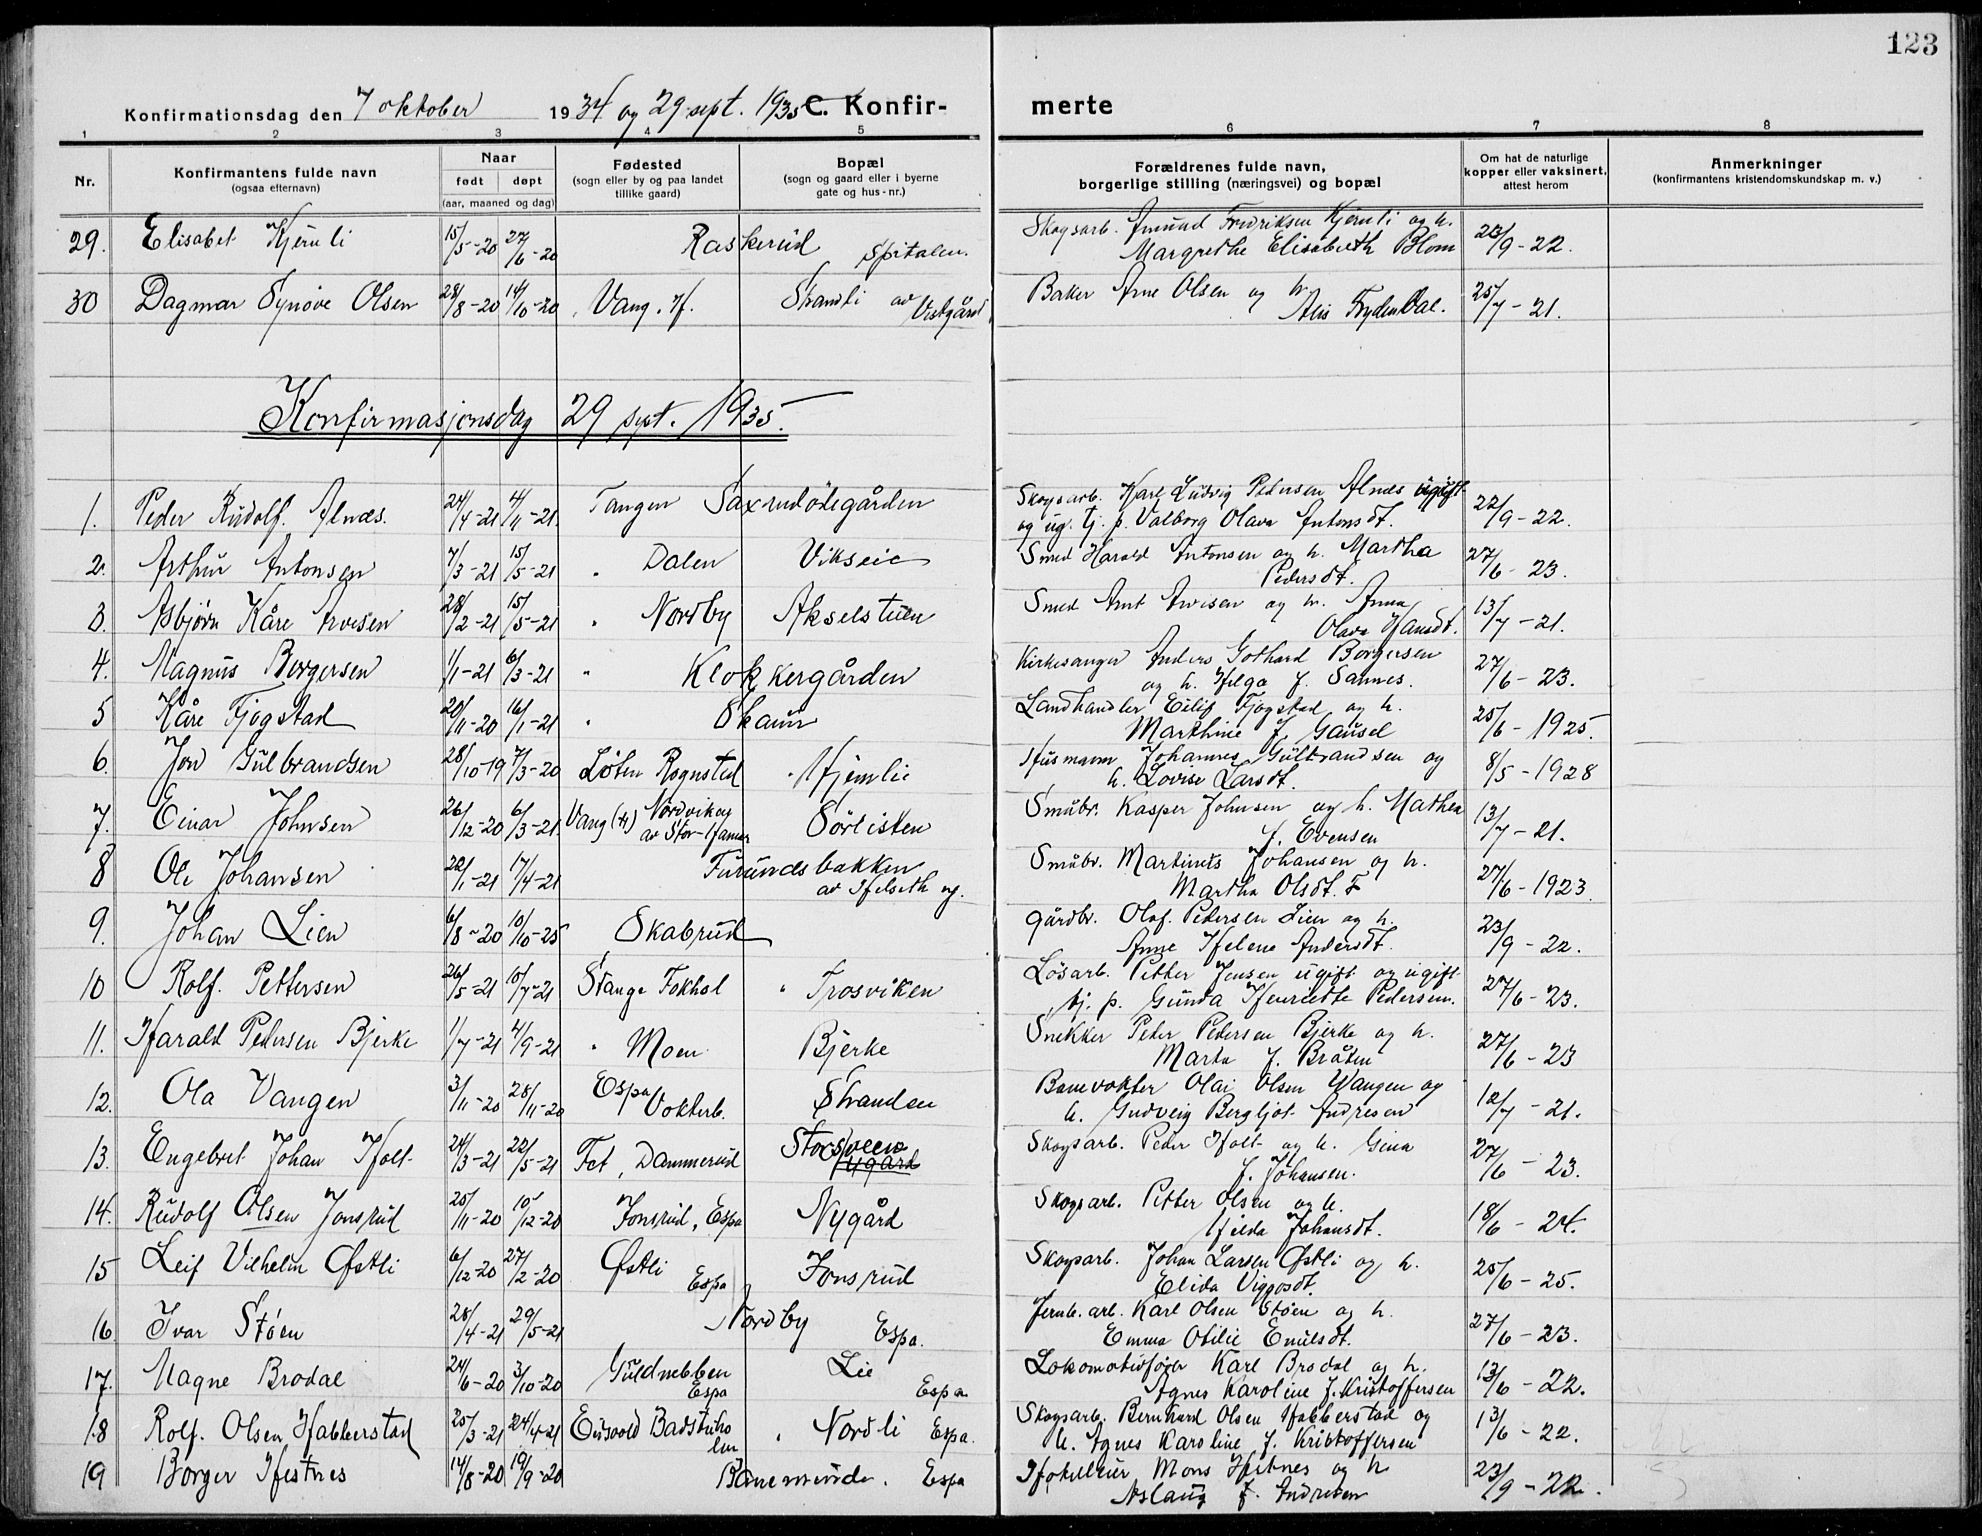 123
Konfirmationsdag den 7 oktober 1934 og 29 sept. 1935 C. Konfir- merte
1 2 3 4 5 6 7 8
Nr.
Konfirmantens fulde navn
(ogsaa efternavn)
Naar
født døpt
(aar, maaned og dag)
Fødested
(sogn eller by og paa landet
tillike gaard)
Bopæl
(sogn og gaard eller i byerne
gate og hus-nr.)
Forældrenes fulde navn,
borgerlige stilling (næringsvei) og bopæl
Om hat de naturlige
kopper eller vaksinert,
attest herom
Anmerkninger
(konfirmantens kristendomskundskap m. v.)
29. Elisabet Kjernli 15/5-20 27/6-20 Raskerud Spitalen. Skogsarb. Amund Fredriksen Kjernli og h.
Margrethe Elisabeth Blom 23/9-22.
30 Dagmar Synøve Olsen 28/8-20 14/10-20 Vang. H. Strandli av Vestgård Baker Arne Olsen og h.
Frydendal. 25/7-21.
Konfirmasjonsdag 29 sept. 1935.
1. Peder Rudolf. Alnæs. 24/4-21 4/11-21. Tangen Saxrudødegården Skogsarb. Karl Ludvig Pedersen Alnæs ugift
og ug. tj. p. Valborg Olava Antonsdt. 22/9-22.
2. Arthur Antonsen 7/3-21 15/5-21 " Dalen Vikseie Smed Harald Antonsen og h. Martha
Pedersdt. 27/6-23.
3. Asbjørn Kåre Arvesen 28/2-21 15/5-21 " Nordby Akselstuen Smed Arnt Arvesen og h. Anna
Olava Hansdt. 13/7-21.
4. Magnus Borgersen 1/1-21 6/3-21 " Klokkergården Kirkesanger Anders Gothard Borgersen
og h. Helga f. Sannes. 27/6-23.
5 Kåre Fjogstad 20/11-20 16/1-21 " Skaun Landhandler Eilif Fjogstad og h.
Marthine f. Gausel 25/6-1925.
6. Jon Gulbrandsen 28/10-19 7/3-20 Løten Rognstad Hjemlie Husmann Johannes Gulbrandsen og
h. Lovise Larsdt. 8/5-1928
7. Einar Johnsen 26/12-20 6/3-21. Vang (H) Nordvikog
av Stor-Hamar Sørlisten Småbr. Kasper Johnsen og h. Mathea
f. Evensen 13/7-21.
8 Ole Johansen 22/1-21 17/4-21 Furundsbakken
av Helseth og. Småbr. Martinus Johansen og h.
Martha Olsdt. 27/6-1923.
9. Johan Lien 6/8-20 10/10-25 Skabrud gårdbr. Olaf. Pedersen Lien og h.
Anne Helene Andersdt. 23/9-22.
10 Rolf. Pettersen 26/5-21 10/7-21 Stange Fokhol " Frosviken Løsarb. Petter Jensen ugift og ugift
tj. p. Gunda Henriette Pedersen. 27/6-23.
11. Harald Pedersen Bjerke 1/7-21 4/9-21 " Moen Bjerke Snekker Peder Pedersen Bjerke og h.
Marta f. Bråten 27/6-23
12. Ola Vangen 3/11-20 28/11-20 Espa Vokterb. Stranden Banevokter Olai Olsen Wangen og
h. Gudveig Bergljot Andresen 12/7-21.
13. Engebret Johan Holt 24/3-21 22/5-21 Fet, Dammerud Storsveen Nygård Skogsarb. Peder Holt og h. Gina
f. Johansen. 27/6-23.
14. Rudolf Olsen Jonsrud 25/11-20 10/12-20 Jonsrud, Espa Nygård Skogsarb. Petter Olsen og h.
Hilda Johansdt. 18/6-24.
15 Leif Vilhelm Østli 6/12-20 27/12-20 Østli Espa Jonsrud Skogsarb. Johan Larsen Østli og h.
Elida Viggosdt. 25/6-25.
16. Ivar Støen 28/4-21 29/5-21 Nordby Espa. Jernb. arb. Karl Olsen Støen og h.
Emma Otilie Emilsdt. 27/6-23.
17. Magne Brodal 24/6-20 3/10-20 Guldnebben Espa Lie Espa Lokomotivfører Karl Brodal og h.
Agnes Karoline f. Kristoffersen 13/6-22.
18 Rolf. Olsen Habberstad 25/3-21 24/4-21 Eidsvold Badstuho
len " Nordli Espa. Skogsarb. Bernhard Olsen Habberstad og
h. Agnes Karoline f. Kristoffersen 13/6-22.
19 Borger Hestnes 14/8-20 19/9-20 Baneminde. Espa Mons Hestnes og h
Aslaug f. Andresen 23/9-22.